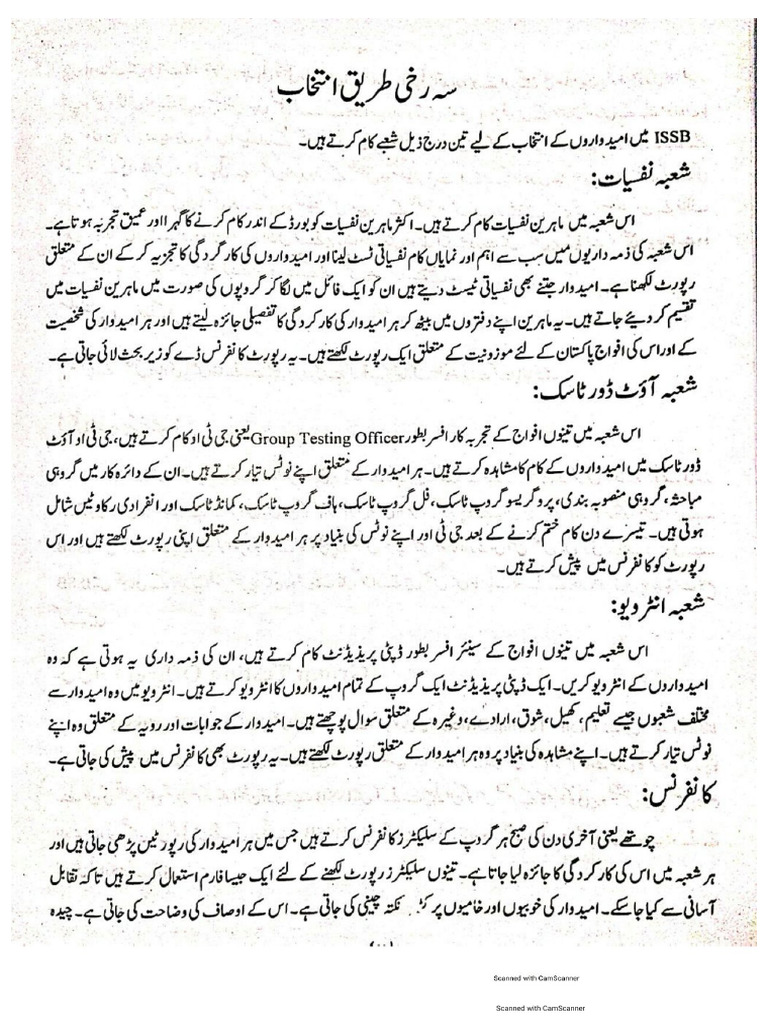 سہ رخی طریق انتخاب
ISSB میں امیدواروں کے انتخاب کے لیے تین درج ذیل شعبے کام کرتے ہیں۔
شعبہ نفسیات:
اس شعبہ میں ماہرین نفسیات کام کرتے ہیں۔ اکثر ماہرین نفسیات کو بورڈ کے اندر کام کرنے کا گہرا اور عمیق تجربہ ہوتا ہے۔
اس شعبہ کی ذمہ داریوں میں سب سے اہم اور نمایاں کام نفسیاتی ٹسٹ لینا اور امیدواروں کی کارگردگی کا تجزیہ کر کے ان کے متعلق
رپورٹ لکھنا ہے۔ امیدوار جتنے بھی نفسیاتی ٹیسٹ دیتے ہیں ان کو ایک فائل میں لگا کر گروپوں کی صورت میں ماہرین نفسیات میں
تقسیم کر دیئے جاتے ہیں۔ یہ ماہرین اپنے دفتروں میں بیٹھ کر ہر امیدوار کی کارکردگی کا تفصیلی جائزہ لیتے ہیں اور ہر امیدوار کی شخصیت
کے اور اس کی افواج پاکستان کے لئے موزونیت کے متعلق ایک رپورٹ لکھتے ہیں۔ یہ رپورٹ کانفرنس ڈے کو زیر بحث لائی جاتی ہے۔
شعبہ آؤٹ ڈور ٹاسک:
اس شعبہ میں تینوں افواج کے تجربہ کار افسر بطور Group Testing Officer یعنی جی ٹی او کام کرتے ہیں، جی ٹی او آؤٹ
ڈور ٹاسک میں امیدواروں کے کام کا مشاہدہ کرتے ہیں۔ ہر امیدوار کے متعلق اپنے نوٹس تیار کرتے ہیں۔ ان کے دائرہ کار میں گروہی
مباحثہ، گروہی منصوبہ بندی، پروگریسو گروپ ٹاسک، فل گروپ ٹاسک، ہاف گروپ ٹاسک، کمانڈ ٹاسک اور انفرادی رکاوٹیں شامل
ہوتی ہیں۔ تیسرے دن کام ختم کرنے کے بعد جی ٹی او اپنے نوٹس کی بنیاد پر ہر امیدوار کے متعلق اپنی رپورٹ لکھتے ہیں اور اس
رپورٹ کو کانفرنس میں پیش کرتے ہیں۔
شعبہ انٹرویو:
اس شعبہ میں تینوں افواج کے سینئر افسر بطور ڈپٹی پریذیڈنٹ کام کرتے ہیں، ان کی ذمہ داری یہ ہوتی ہے کہ وہ
امیدواروں کے انٹرویو کریں۔ ایک ڈپٹی پریذیڈنٹ ایک گروپ کے تمام امیدواروں کا انٹرویو کرتے ہیں۔ انٹرویو میں وہ امیدوار سے
مختلف شعبوں جیسے تعلیم، کھیل، شوق، ارادے، وغیرہ کے متعلق سوال پوچھتے ہیں۔ امیدوار کے جوابات اور رویہ کے متعلق وہ اپنے
نوٹس تیار کرتے ہیں۔ اپنے مشاہدہ کی بنیاد پر وہ ہر امیدوار کے متعلق رپورٹ لکھتے ہیں۔ یہ رپورٹ بھی کانفرنس میں پیش کی جاتی ہے۔
کانفرنس:
چوتھے یعنی آخری دن کی صبح ہر گروپ کے سلیکٹرز کانفرنس کرتے ہیں جس میں ہر امیدوار کی رپورٹیں پڑھی جاتی ہیں اور
ہر شعبہ میں اس کی کارکردگی کا جائزہ لیا جاتا ہے۔ تینوں سلیکٹرز رپورٹ لکھنے کے لئے ایک جیسا فارم استعمال کرتے ہیں تاکہ تقابل
آسانی سے کیا جا سکے۔ امیدوار کی خوبیوں اور خامیوں پر نکتہ چینی کی جاتی ہے۔ اس کے اوصاف کی وضاحت کی جاتی ہے۔ چیدہ
Scanned with CamScanner
Scanned with CamScanner